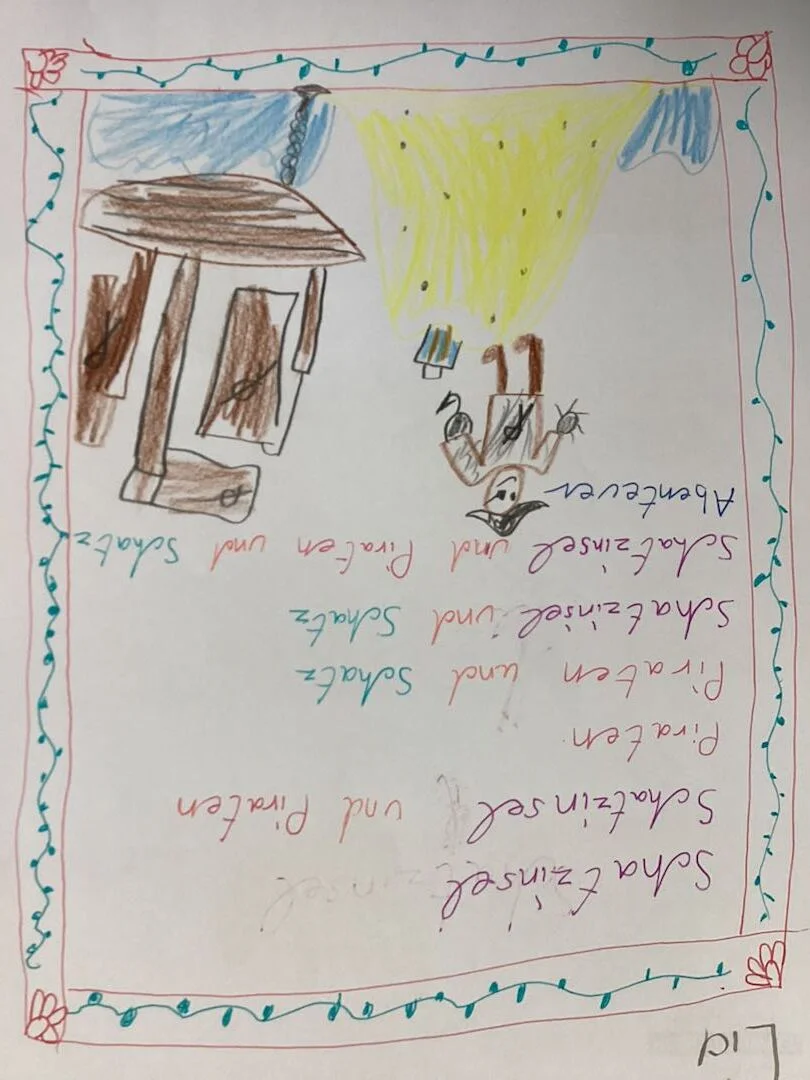 Lia
Schatzinsel
Schatzinsel und Piraten
Piraten
Piraten und Schatz
Schatzinsel und Schatz
Schatzinsel und Piraten und Schatz
Abenteuer